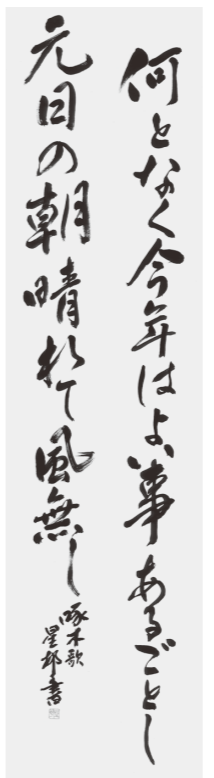 何となく今年はよい事あるごとし
元日の朝晴れて風無し
啄木歌
星邨書